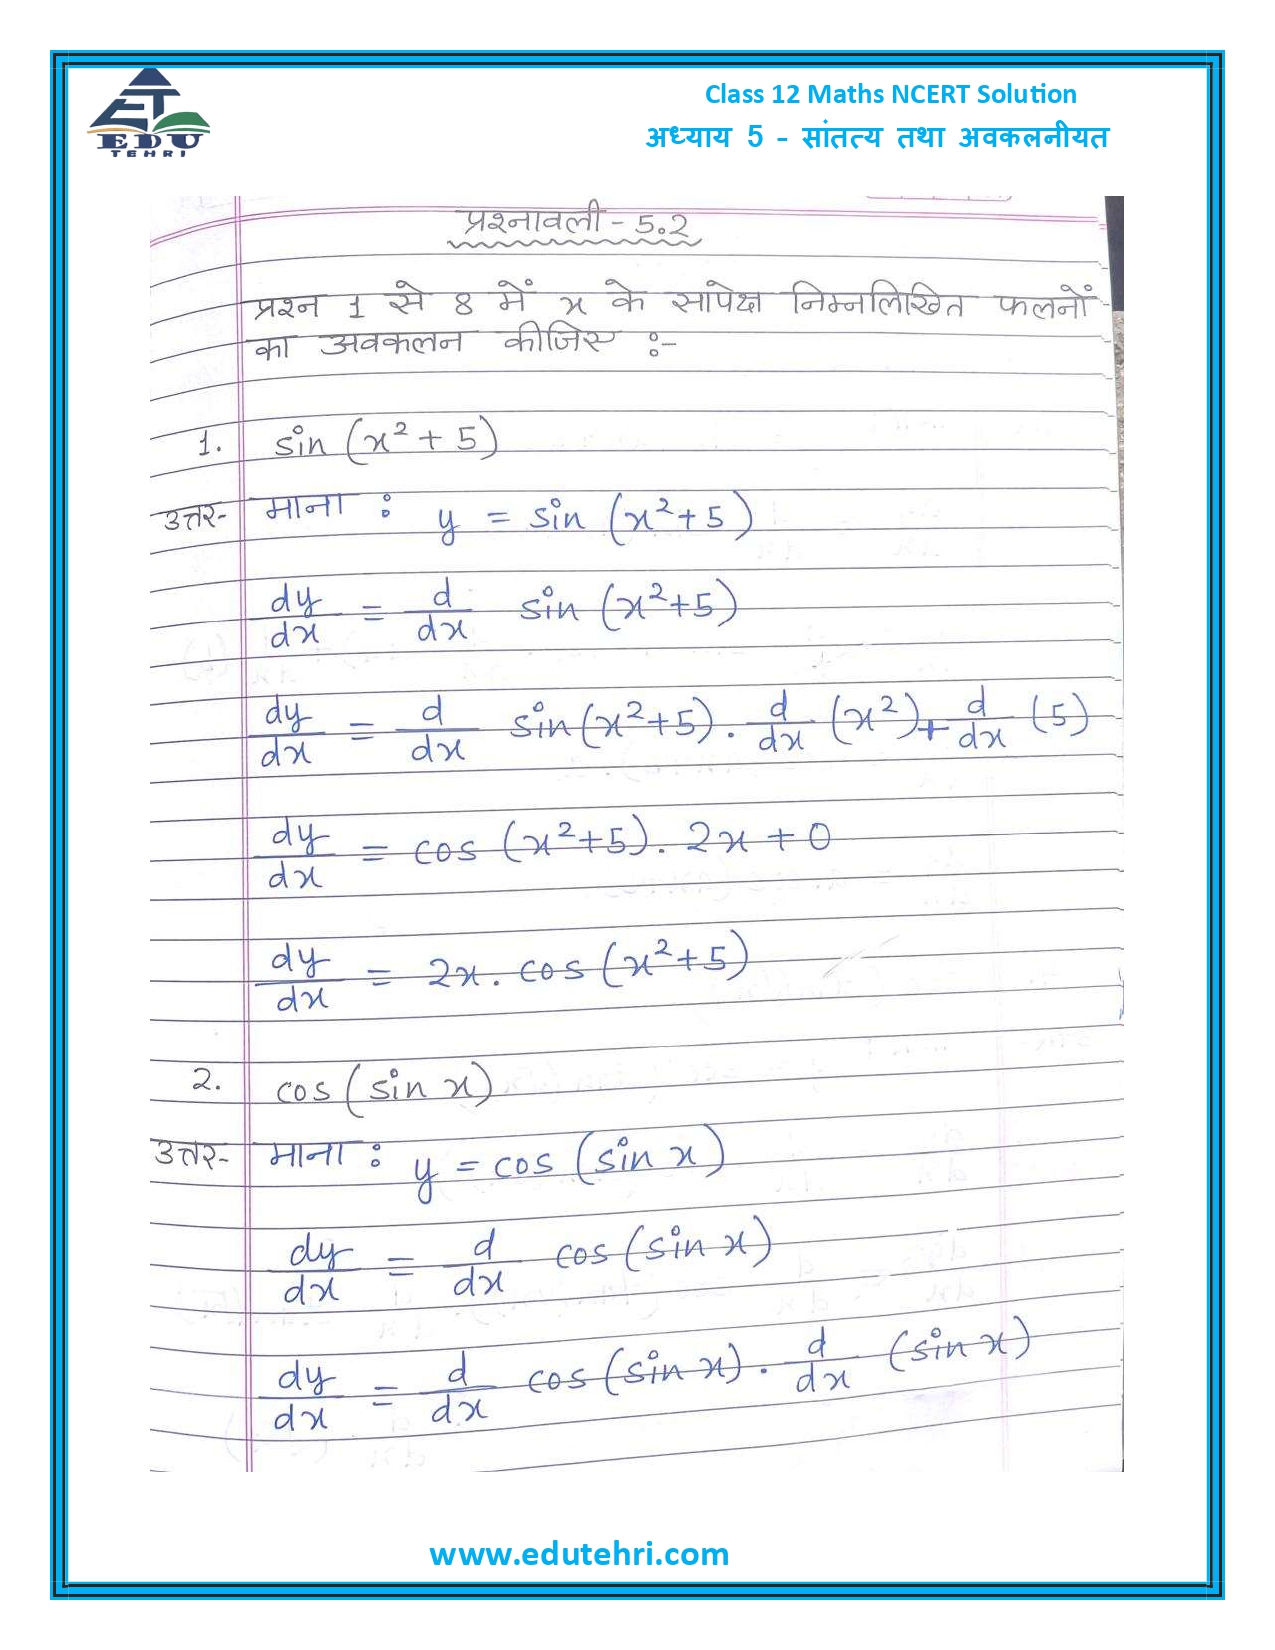 EDU
TEHRI
Class 12 Maths NCERT Solution
अध्याय 5 - सांतत्य तथा अवकलनीयत
प्रश्नावली - 5.2
प्रश्न 1 से 8 में x के सापेक्ष निम्नलिखित फलनों
का अवकलन कीजिए :-
1. sin (x² + 5)
उत्तर- माना : y = sin (x²+5)
dy/dx = d/dx sin (x²+5)
dy/dx = d/dx sin(x²+5) . d/dx (x²) + d/dx (5)
dy/dx = cos (x²+5) . 2x + 0
dy/dx = 2x . cos (x²+5)
2. cos (sin x)
उत्तर- माना : y = cos (sin x)
dy/dx = d/dx cos (sin x)
dy/dx = d/dx cos (sin x) . d/dx (sin x)
www.edutehri.com